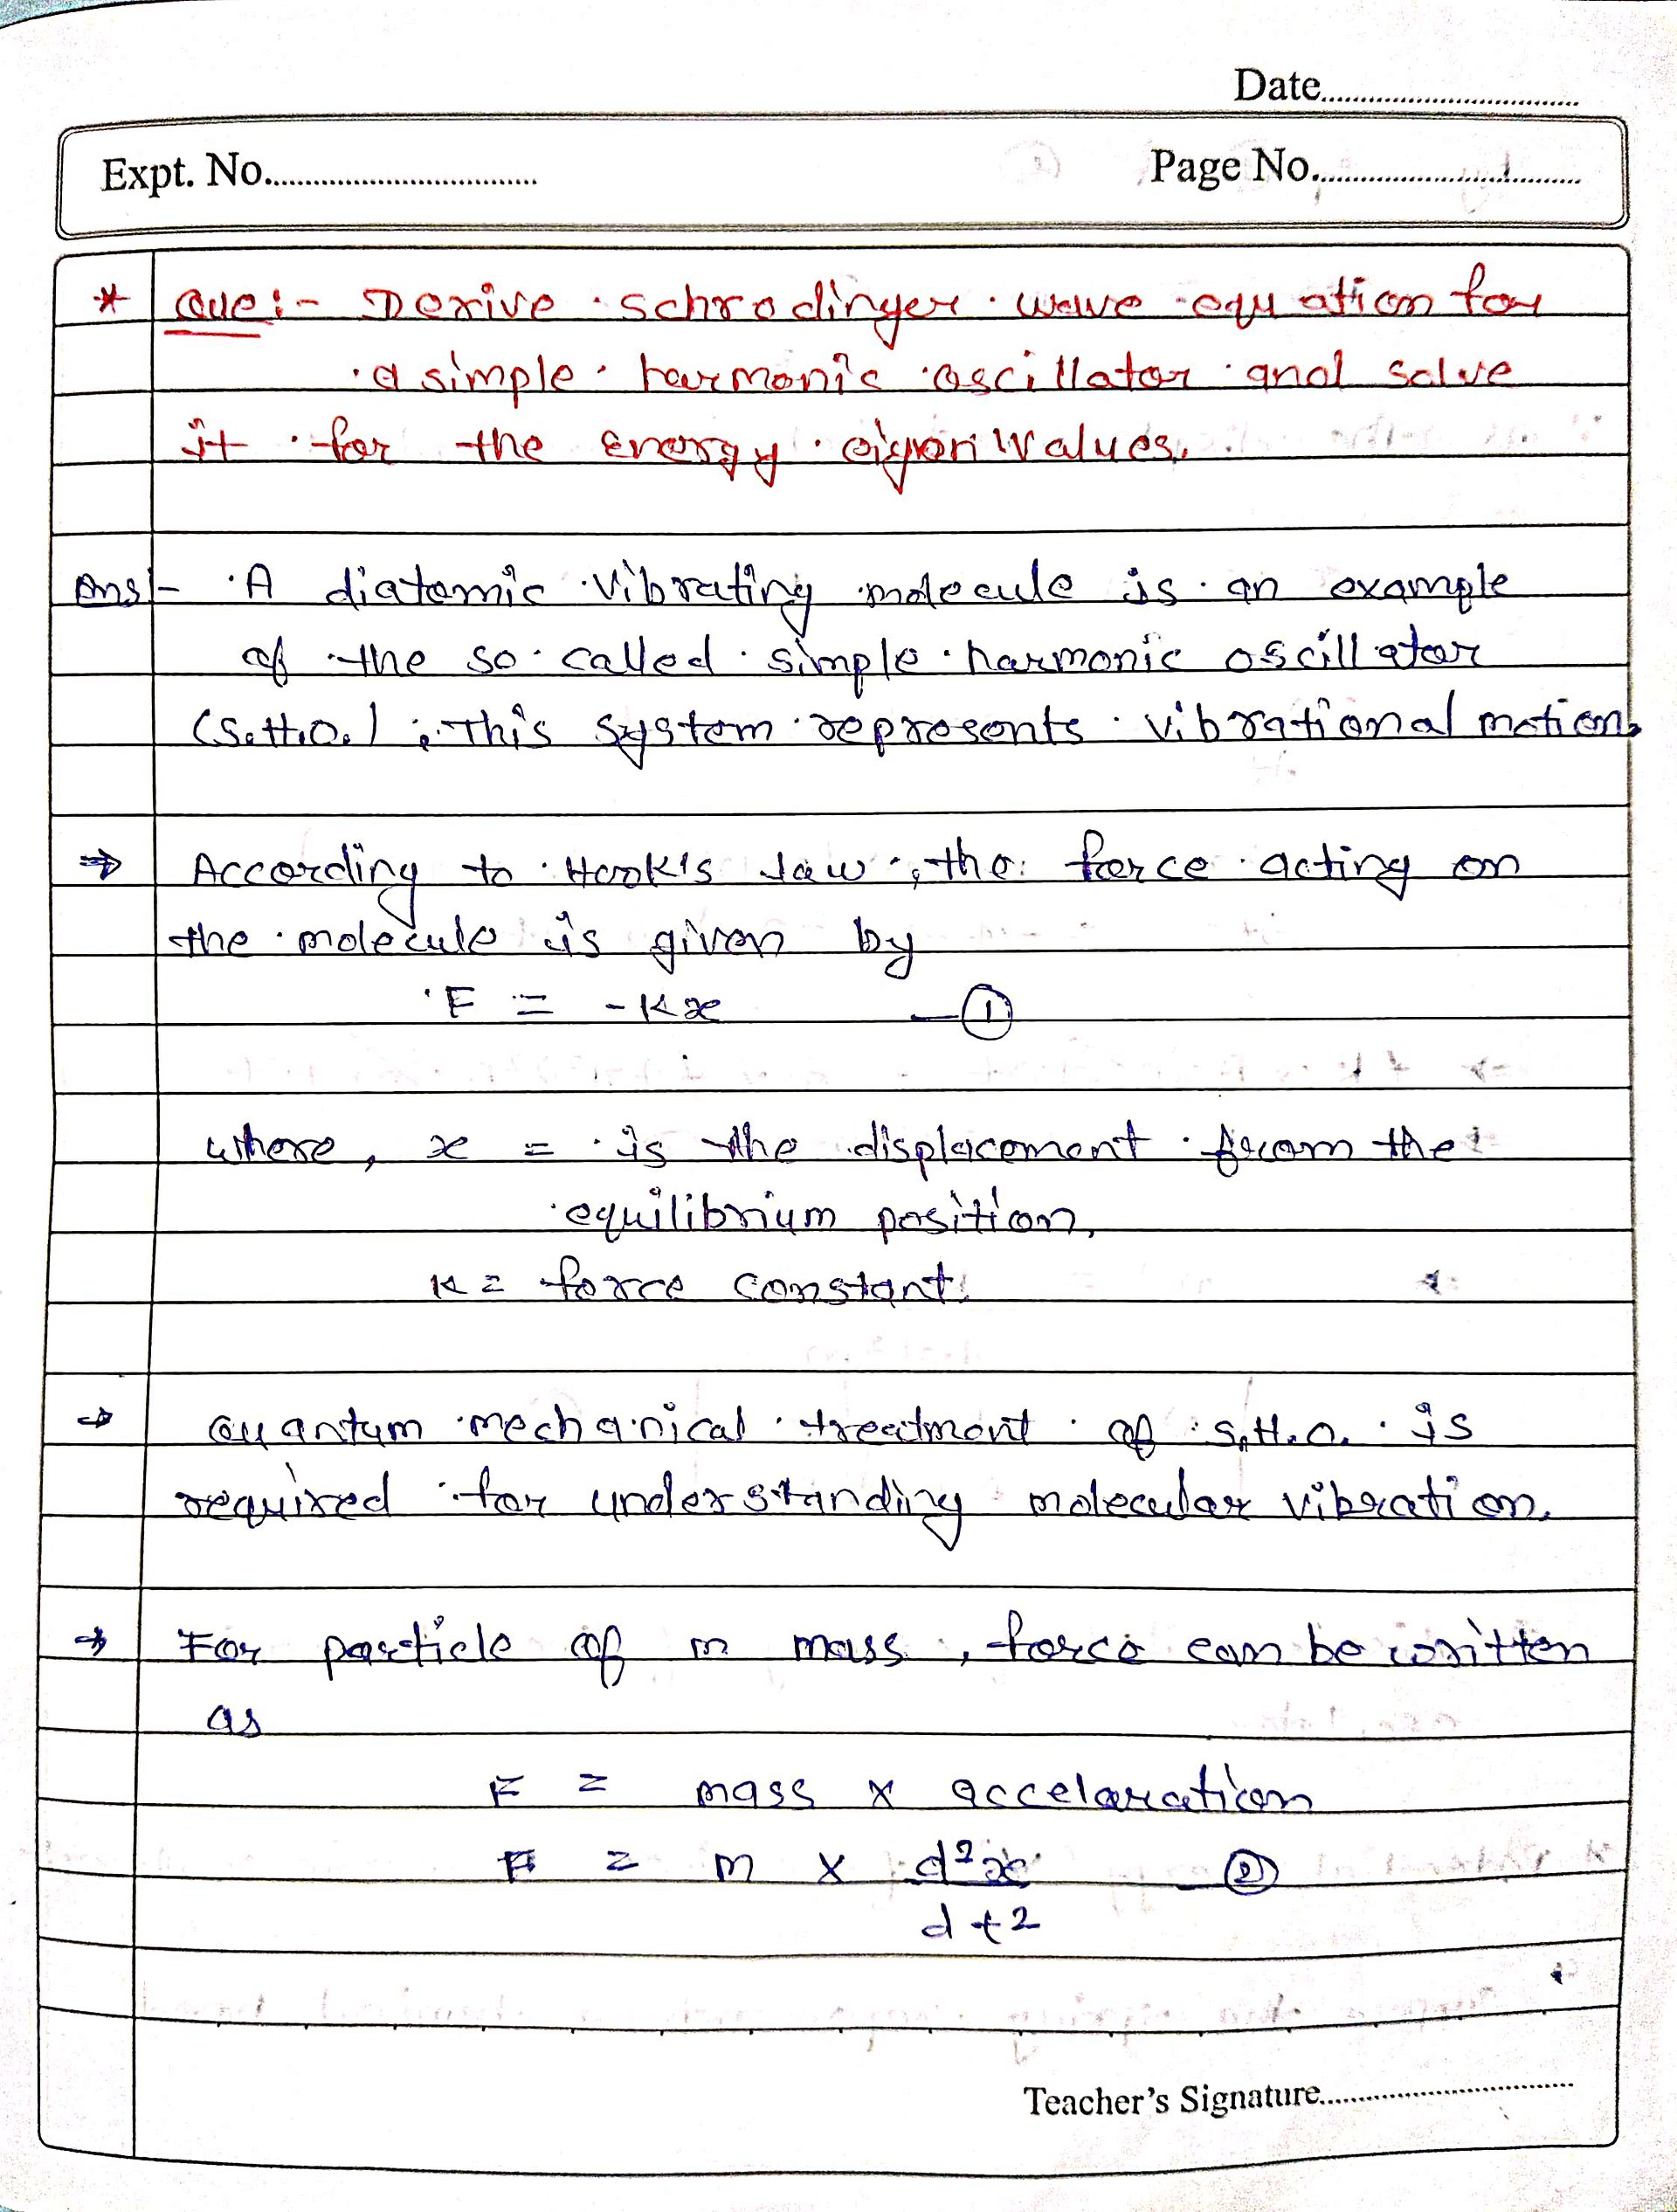 Date
Expt. No.
Page No.
* Que:- Derive schrodinger wave equation for
a simple harmonic oscillator and solve
it for the Energy eigen values.
Ans:- A diatomic vibrating molecule is an example
of the so called simple harmonic oscillator
(S.H.O.), This system represents vibrational motion.
⇒ According to Hook's law, the force acting on
the molecule is given by
F = -Kx —①
where, x = is the displacement from the
equilibrium position,
K = force constant.
→ Quantum mechanical treatment of S.H.O. is
required for understanding molecular vibration.
→ For particle of m mass, force can be written
as
F = mass x accelaration
F = m x d²x —②
dt2
Teacher's Signature